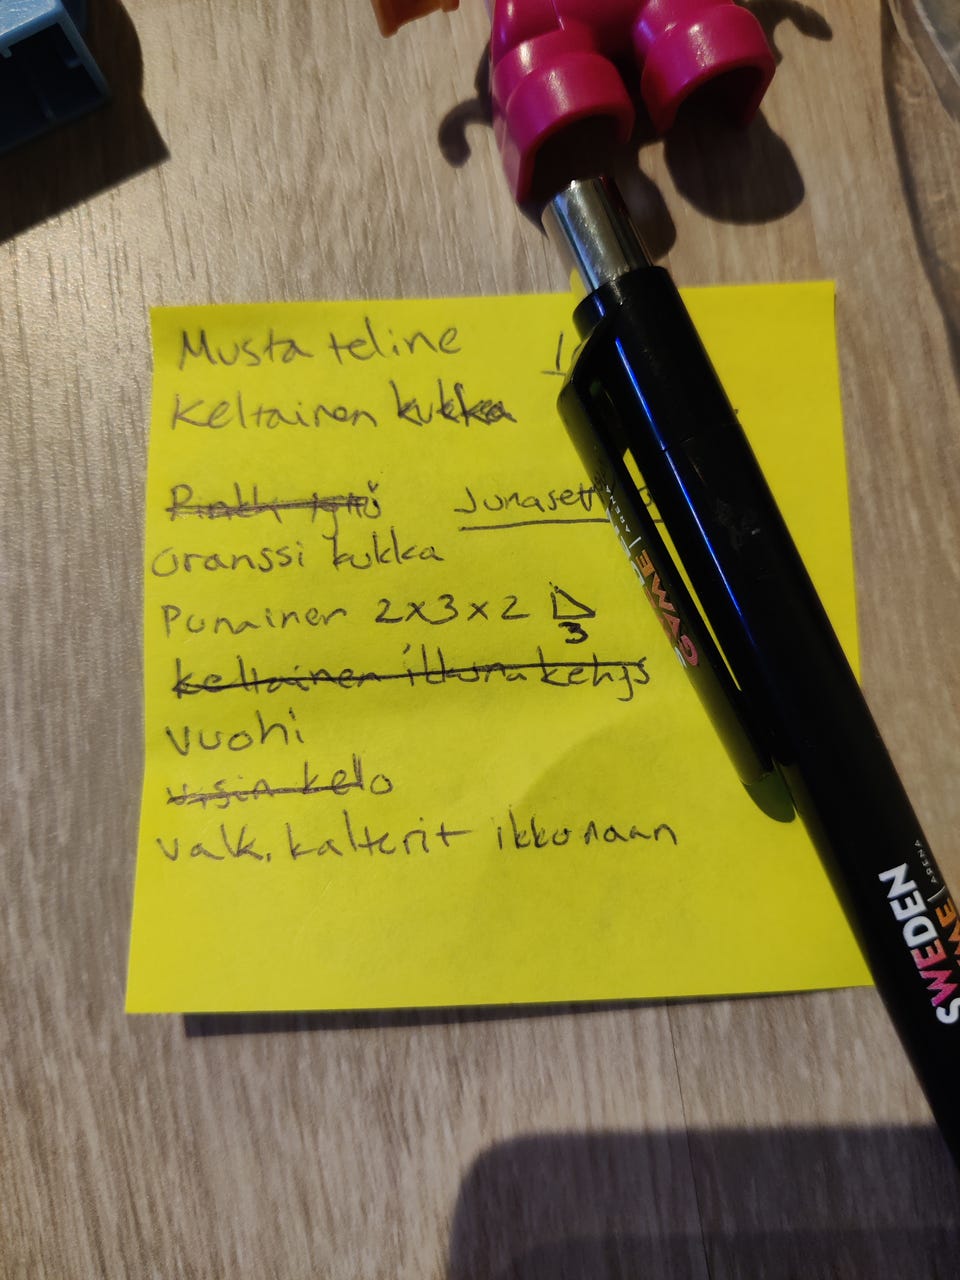 Musta teline
Keltainen kukka
Pinkki tyttö Junasetti
Oranssi kukka
Punainen 2x3x2
3
keltainen ikkuna kehys
Vuohi
kello
valk. kalterit ikkunaan
GAME ARENA
SWEDEN
GAME ARENA